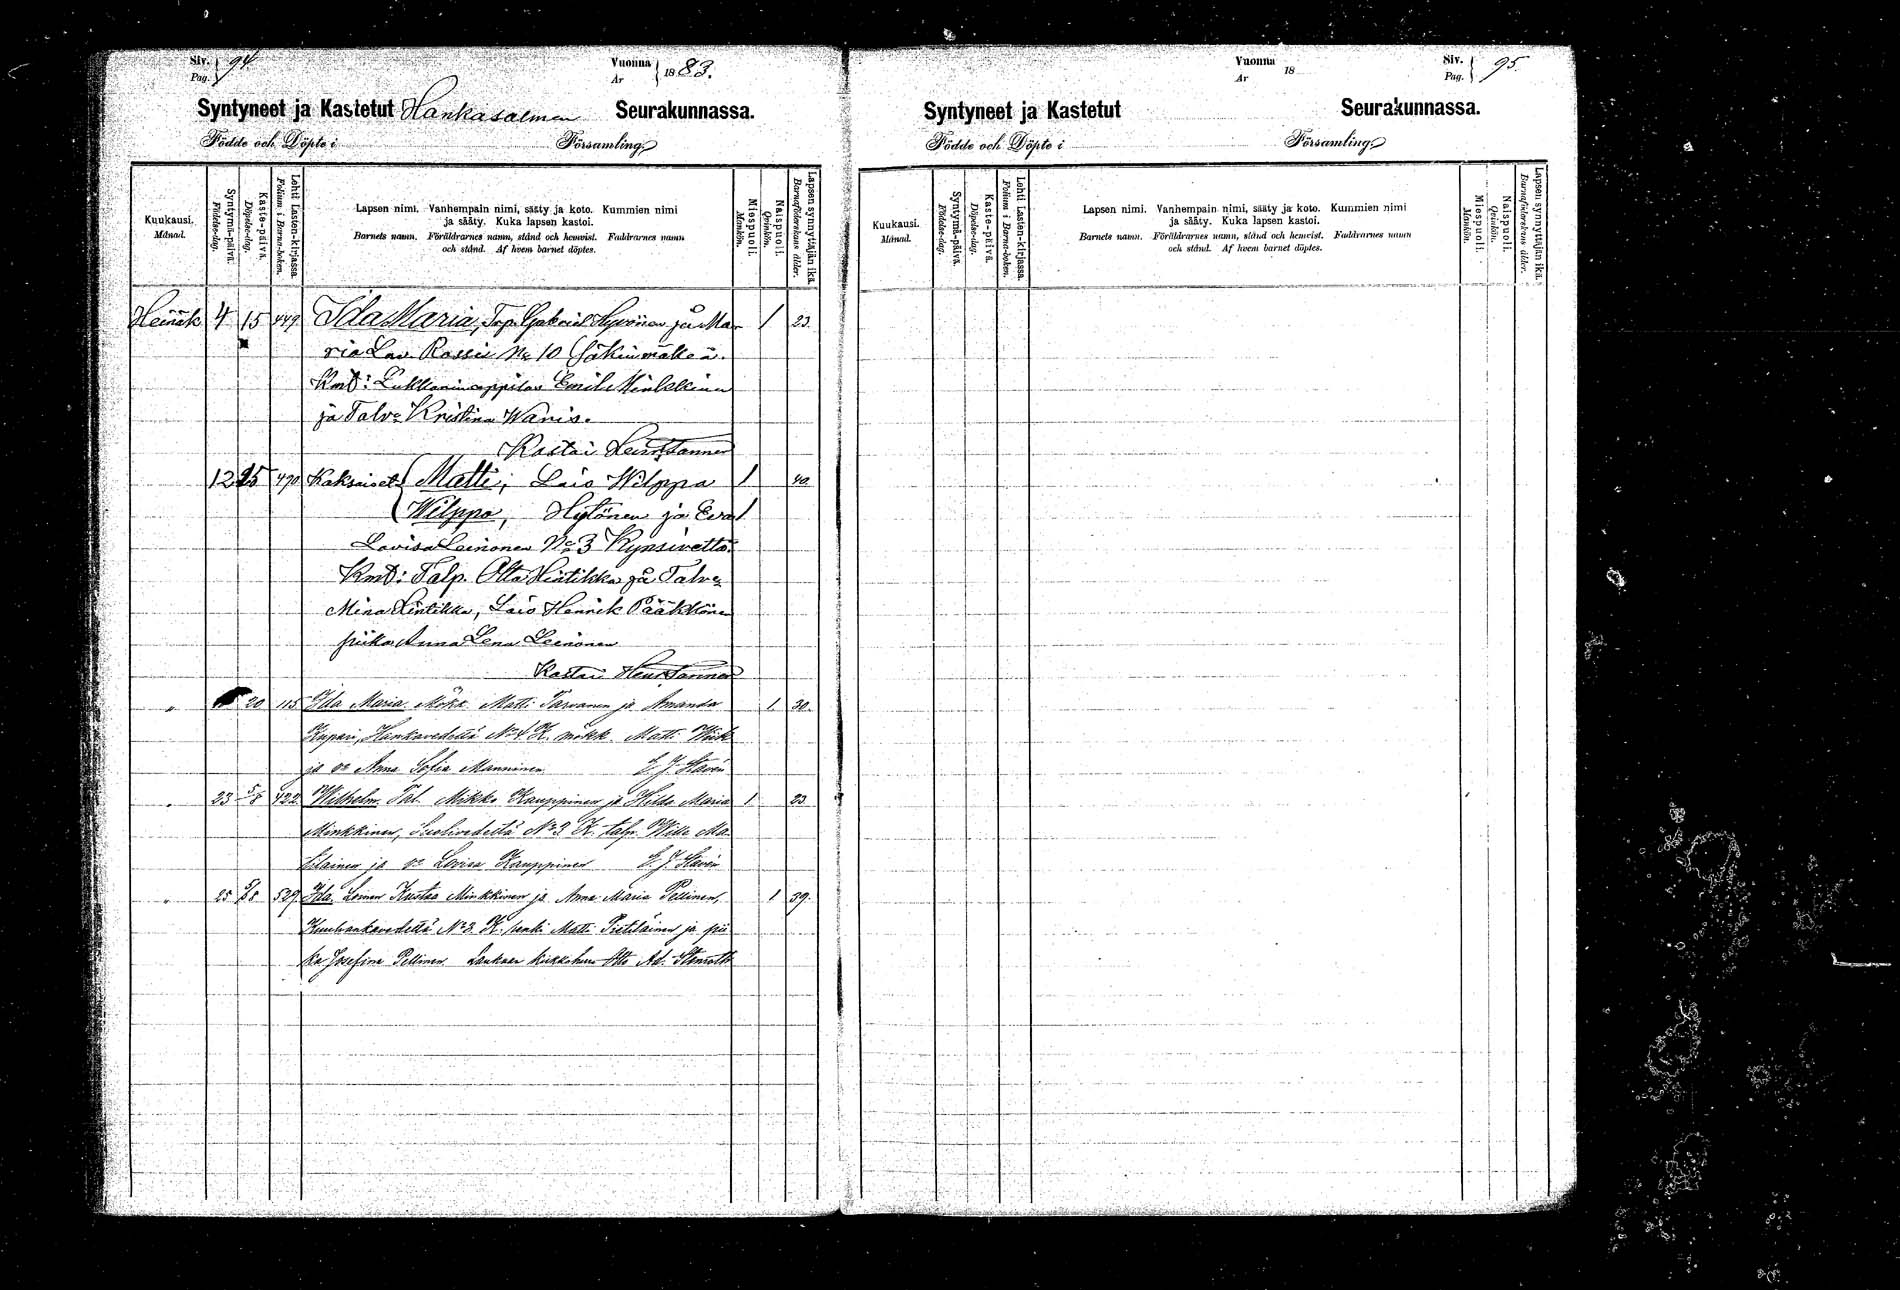 Siv. Pag. 94
Vuonna År 1883.
Syntyneet ja Kastetut Hankasalmen Seurakunnassa.
Födde och Döpte i Församling
Kuukausi. Månad.
Syntymä-päivä. Födelse-dag.
Kaste-päivä. Döpelse-dag.
Lehti Lasten-kirjassa. Folium i Barna-boken.
Lapsen nimi. Vanhempain nimi, sääty ja koto. Kummien nimi
ja sääty. Kuka lapsen kastoi.
Barnets namn. Föräldrarnes namn, stånd och hemvist. Faddrarnes namn
och stånd. Af hvem barnet döptes.
Miespuoli. Mankön.
Naispuoli. Qvinkön.
Lapsen synnyttäjän ikä. Barnaföderskans ålder.
Heinäk 4 15 449 Ida Maria, Gabriel Hyvönen ja Ma- 1 23.
ria Lov. Rossi No 10
Kmt: Emil Minkkinen
ja Talv: Kristina Waris.
Kastai
12 15 470 Kaksoiset Matti, Lois Wilppo 1 40.
Wilppo, Hytönen ja Eva 1
Lovisa Leinonen No 3 Kynsivettä.
Kmt: Talp. Otto Hintikka ja Talv:
Mina Hintikka, Lois Henrik Pääkkönen
piika Anna Lena Leinonen
Kastai
" 20 115 Ida Maria Mök: Matti Tarvanen ja Amanda 1. 30.
Kupari, Hankavedeltä No 4. K. mökk. Matti
ja v: Anna Sofia Manninen E. J. Stavén
" 23 5/8 422 Wilhelm Tal. Mikko Kauppinen ja Hilda Maria 1 23
Minkkinen, Suolivedeltä No 3 K. talp. Wille Ma-
tilainen ja v: Lovisa Kauppinen E. J. Stavén
" 25 5/8 529. Ida Loinen Kustaa Minkkinen ja Anna Maria Pellinen, 1 39.
Kuuhankavedeltä No 3. K. renki Matti Pietiläinen ja pii
ka Josefina Pellinen Laukaan Otto Ad.
Vuonna År 18
Siv. Pag. 95.
Syntyneet ja Kastetut Seurakunnassa.
Födde och Döpte i Församling
Kuukausi. Månad.
Syntymä-päivä. Födelse-dag.
Kaste-päivä. Döpelse-dag.
Lehti Lasten-kirjassa. Folium i Barna-boken.
Lapsen nimi. Vanhempain nimi, sääty ja koto. Kummien nimi
ja sääty. Kuka lapsen kastoi.
Barnets namn. Föräldrarnes namn, stånd och hemvist. Faddrarnes namn
och stånd. Af hvem barnet döptes.
Miespuoli. Mankön.
Naispuoli. Qvinkön.
Lapsen synnyttäjän ikä. Barnaföderskans ålder.